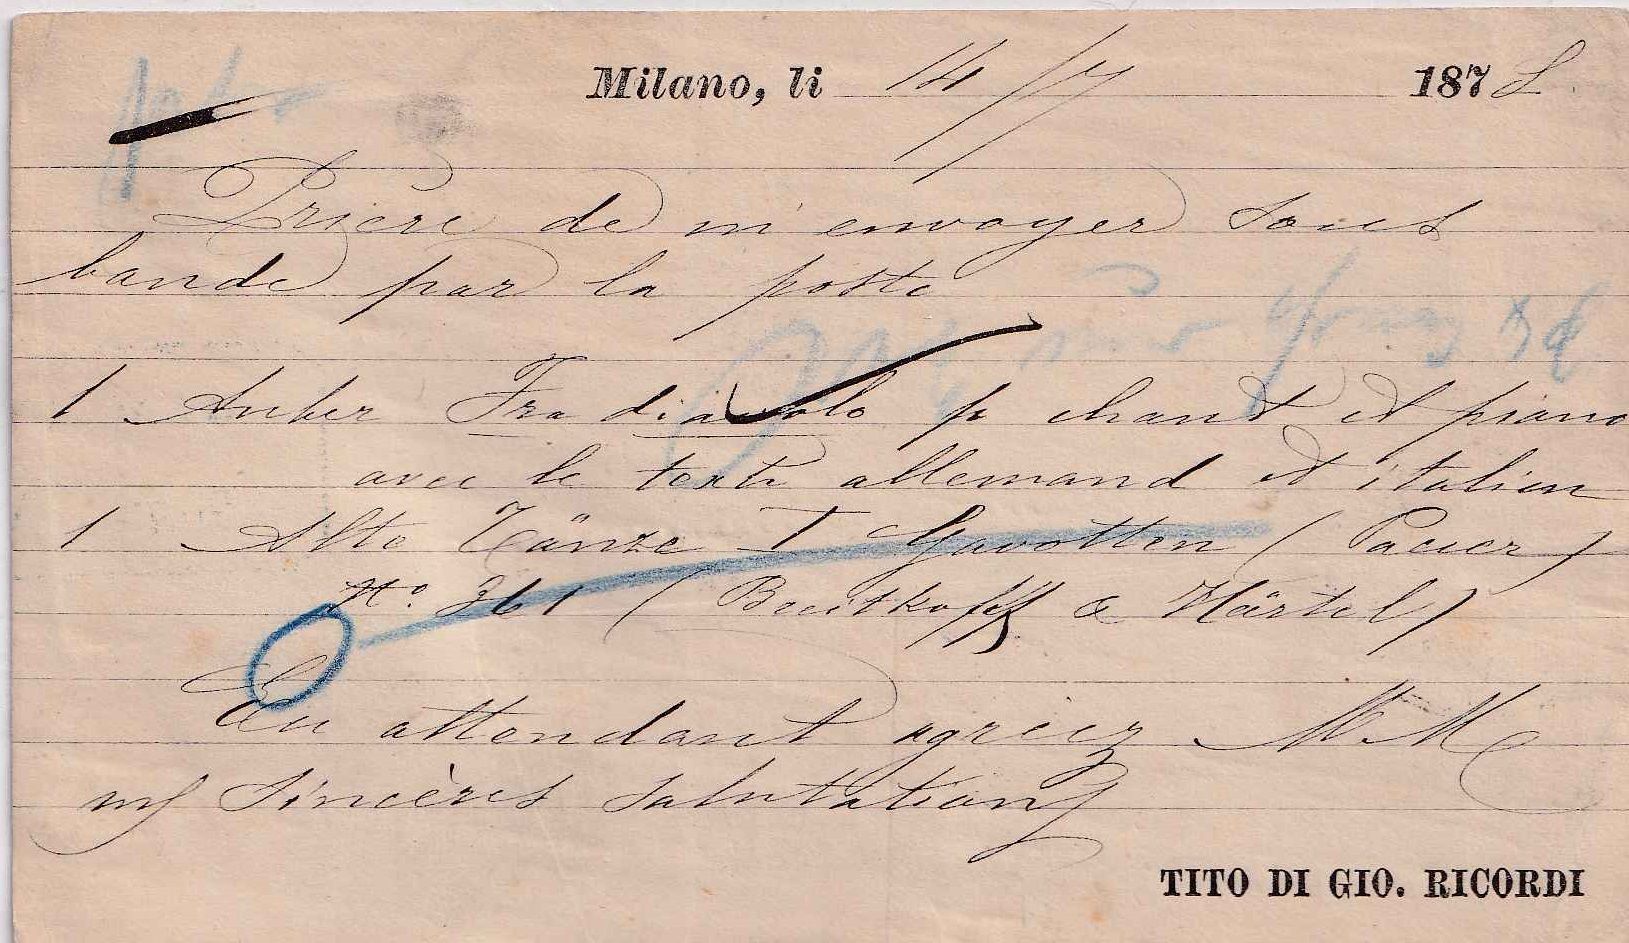 Milano, li 14/7 1878
Prière de m'envoyer sous
bande par la poste
1 Auber Fra diavolo p chant et piano
avec le texte allemand et italien
1 Alte Tänze I Gavotten (Pauer)
No. 361 (Breitkopf & Härtel)
En attendant agréez MM
mes sincères salutations
TITO DI GIO. RICORDI